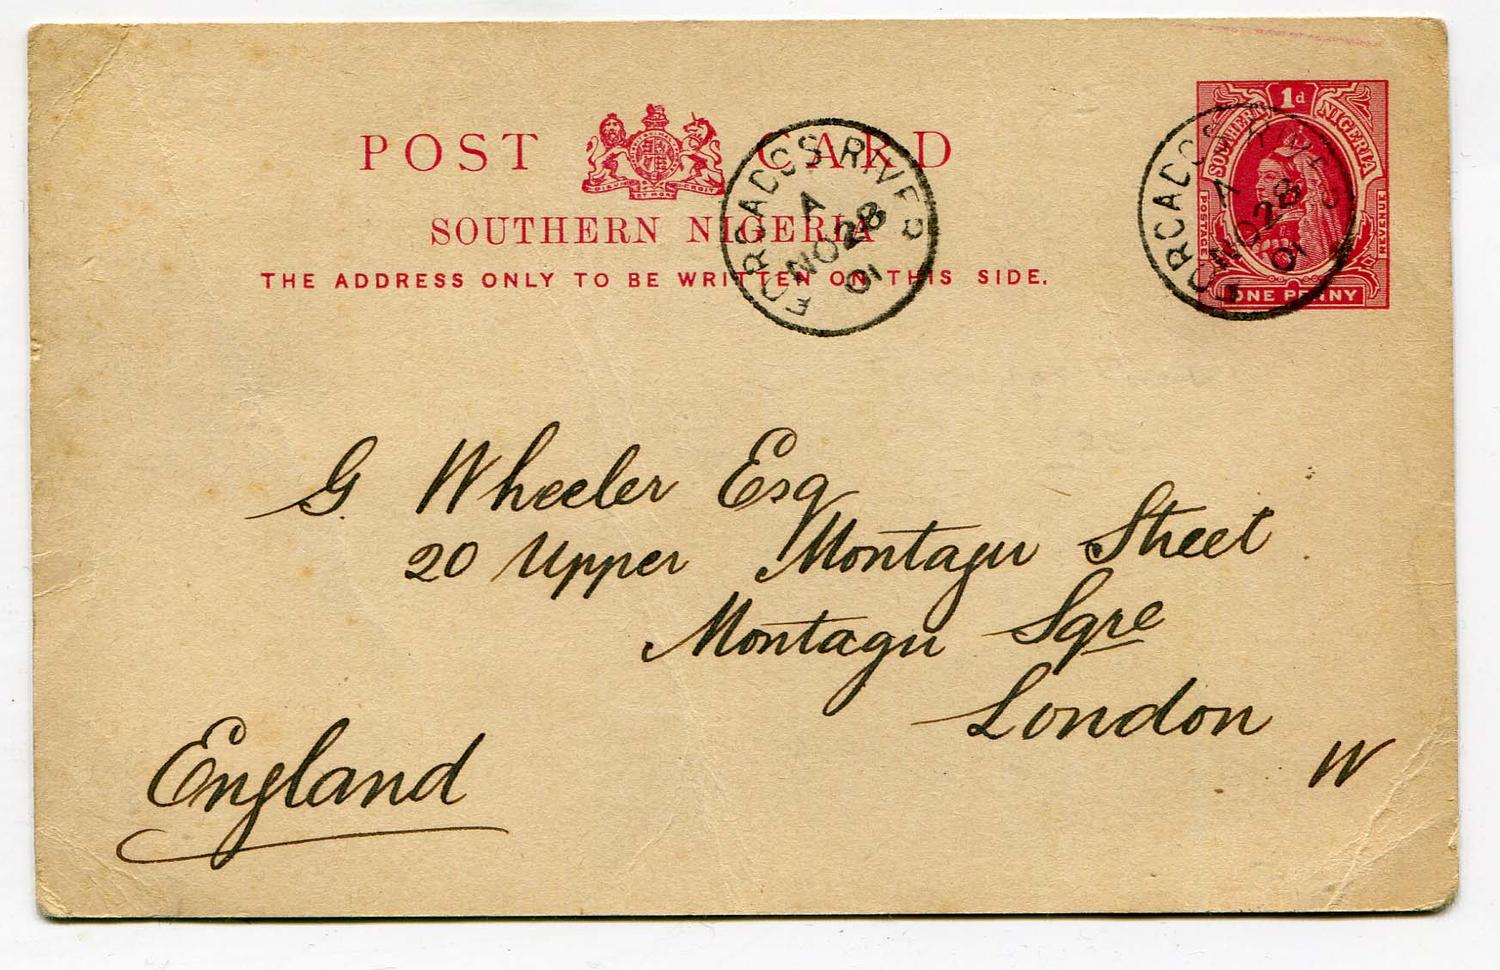 POST CARD
SOUTHERN NIGERIA
THE ADDRESS ONLY TO BE WRITTEN ON THIS SIDE.
FORCADOS RIVER
A
NO 28
01
1d
SOUTHERN NIGERIA
POSTAGE
REVENUE
ONE PENNY
FORCADOS RIVER
A
NO 28
01
G. Wheeler Esq
20 Upper Montagu Street
Montagu Sqre
London
W
England